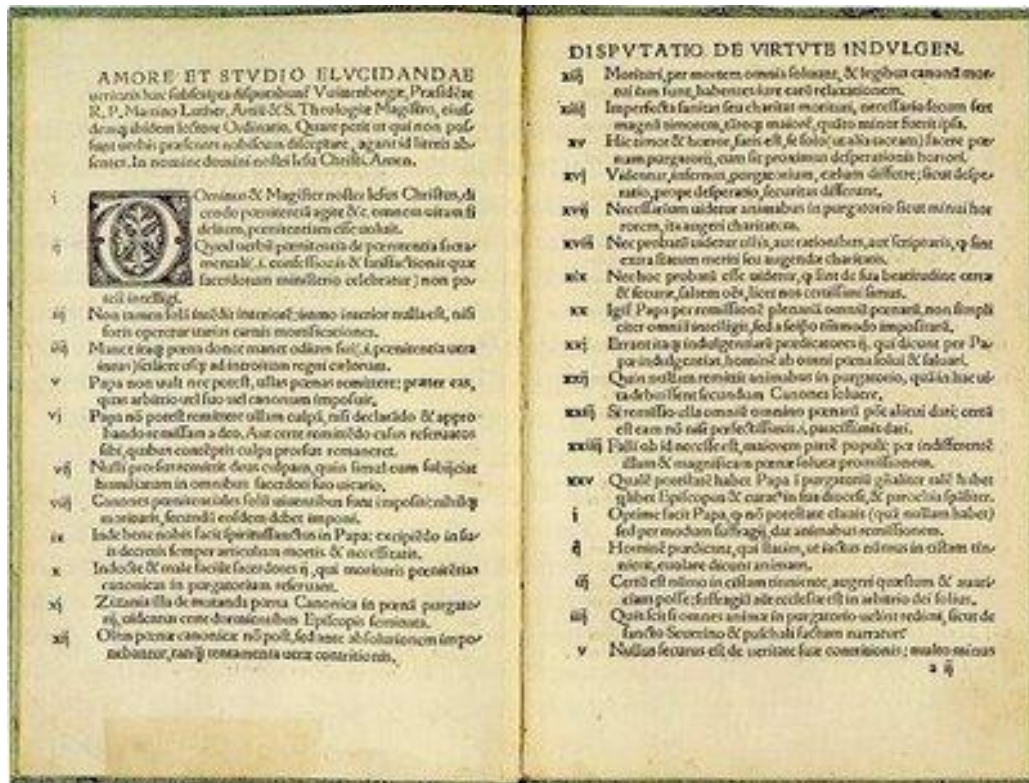 AMORE ET STVDIO ELVCIDANDAE
ueritatis hæc subscripta disputabunť Vuittenbergæ, Præsidēte
R. P. Martino Luther, Artiū & S. Theologiæ Magistro, eius-
demq; ibidem lectore Ordinario. Quare petit ut qui non pos-
sunt uerbis præsentes nobiscum disceptare, agant id literis ab-
sentes. In nomine domini nostri Iesu Christi, Amen.
i Dominus & Magister noster Iesus Christus, di
cendo pœnitentiā agite &c. omnem uitam fi
delium, pœnitentiam esse uoluit.
ij Quod uerbū pœnitentia de pœnitentia sacra-
mentali .i. confessionis & satisfactionis quæ
sacerdotum ministerio celebratur) non po-
test intelligi.
iij Non tamen solā intēdit interiorē; immo interior nulla est, nisi
foris operetur uarias carnis mortificationes.
iiij Manet itaq; pœna donec manet odium sui, .i. pœnitentia uera
intus) scilicet usq; ad introitum regni cælorum.
v Papa non uult nec potest, ullas pœnas remittere; præter eas,
quas arbitrio uel suo uel canonum imposuit.
vj Papa nō potest remittere ullam culpā, nisi declarādo & appro-
bando remissam a deo. Aut certe remittēdo casus reseruatos
sibi, quibus contēptis culpa prorsus remaneret.
vij Nulli prorsus remittit deus culpam, quin simul eum subijciat
humiliatum in omnibus sacerdoti suo uicario.
viij Canones pœnitentiales solū uiuentibus sunt impositi; nihilq;
morituris, secundū eosdem debet imponi.
ix Inde bene nobis facit spiritussanctus in Papa; excipiēdo in su-
is decretis semper articulum mortis & necessitatis.
x Indocte & male faciūt sacerdotes ij, qui morituris pœnitētias
canonicas in purgatorium reseruant.
xj Zizania illa de mutanda pœna Canonica in pœnā purgato-
rij, uidentur certe dormientibus Episcopis seminata.
xij Olim pœnæ canonicæ nō post, sed ante absolutionem impo-
nebantur, tanq̄ tentamenta ueræ contritionis.
DISPVTATIO DE VIRTVTE INDVLGEN.
xiij Morituri, per mortem omnia soluunt, & legibus canonū mor-
tui iam sunt, habentes iure earū relaxationem.
xiiij Imperfecta sanitas seu charitas morituri, necessario secum fert
magnū timorem, tātoq; maiorē, quāto minor fuerit ipsa.
xv Hic timor & horror, satis est, se solo (ut alia taceam) facere pœ-
nam purgatorij, cum sit proximus desperationis horrori.
xvj Videntur, infernus, purgatorium, cælum differre; sicut despe-
ratio, prope desperatio, securitas differunt.
xvij Necessarium uidetur animabus in purgatorio sicut minui hor
rorem, ita augeri charitatem.
xviij Nec probatū uidetur ullis, aut rationibus, aut scripturis, q̄ sint
extra statum meriti seu augendæ charitatis.
xix Nec hoc probatū esse uidetur, q̄ sint de sua beatitudine certæ
& securæ, saltem oēs, licet nos certissimi simus.
xx Igiť Papa per remissionē plenariā omniū pœnarū, non simpli
citer omniū intelligit, sed a seipso tātūmodo impositarū.
xxj Errant itaq; indulgentiarū prædicatores ij, qui dicunt per Pa-
pæ indulgentias, hominē ab omni pœna solui & saluari.
xxij Quin nullam remittit animabus in purgatorio, quā in hac ui-
ta debuissent secundum Canones soluere.
xxiij Si remissio ulla omniū omnino pœnarū pōt alicui dari; certū
est eam nō nisi perfectissimis .i. paucissimis dari.
xxiiij Falli ob id necesse est, maiorem partē populi; per indifferentē
illam & magnificam pœnæ solutæ promissionem.
xxv Qualē potestatē habet Papa ī purgatoriū gñaliter talē habet
q̄libet Episcopus & curatꝰ in sua diocesi, & parochia spāliter.
i Optime facit Papa, q̄ nō potestate clauis (quā nullam habet)
sed per modum suffragij, dat animabus remissionem.
ij Hominē prædicant, qui statim, ut iactus nūmus in cistam tin-
nierit, euolare dicunt animam.
iij Certū est nūmo in cistam tinniente, augeri quæstum & auari-
ciam posse; suffragiū aūt ecclesiæ est in arbitrio dei solius.
iiij Quis scit si omnes animæ in purgatorio uelint redimi, sicut de
sancto Seuerino & paschali factum narratur.
v Nullus securus est de ueritate suæ contritionis; multo minus
a ij